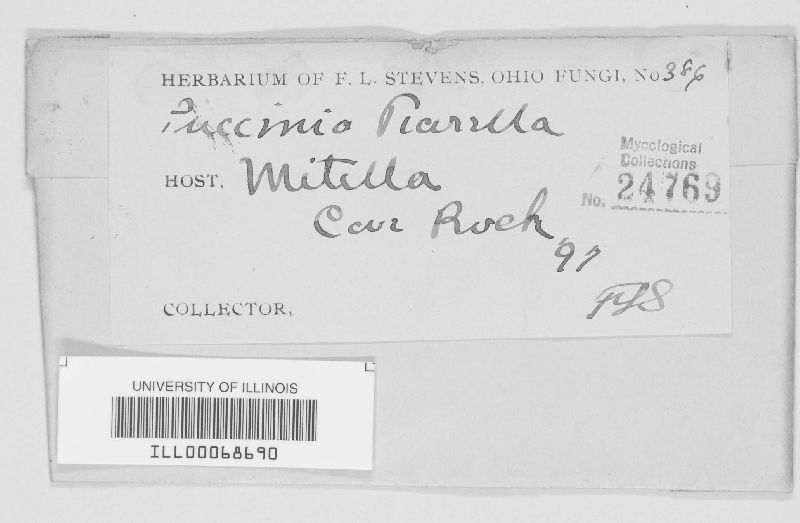 HERBARIUM OF F. L. STEVENS, OHIO FUNGI, No 386
Puccinia Tiarella
HOST, Mitella
Mycological
Collections
No. 24769
Cave Rock
'97
COLLECTOR, FLS
UNIVERSITY OF ILLINOIS
ILL00068690